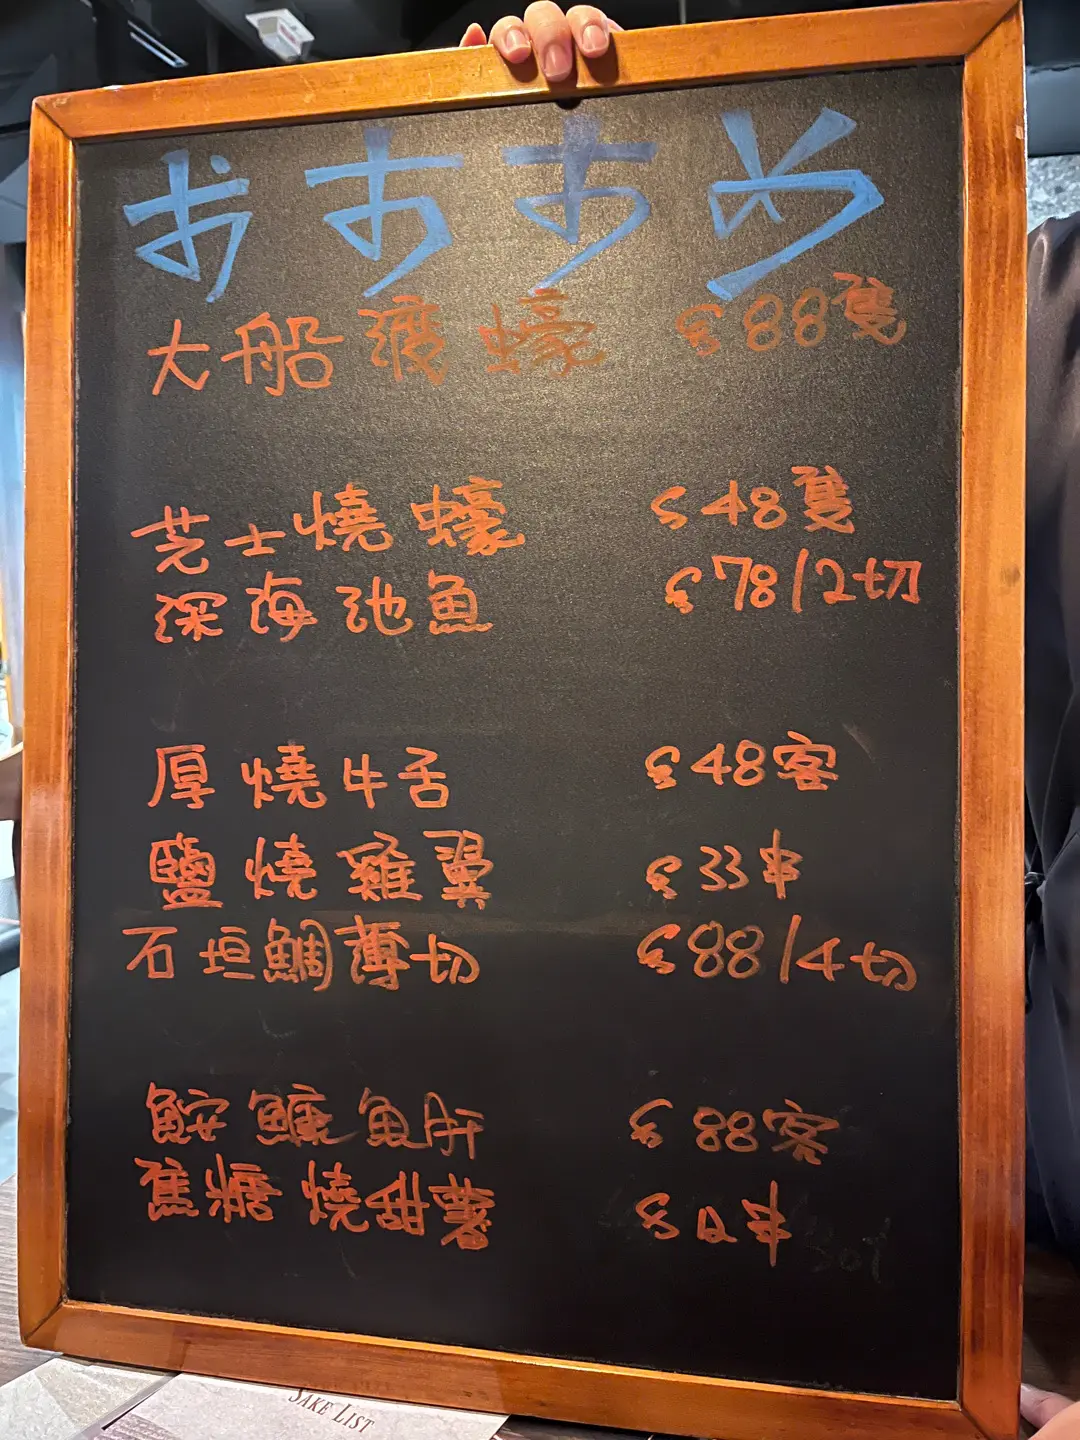 おすすめ
大船渡蠔 $88隻
芝士燒蠔 $48隻
深海池魚 $78/2切
厚燒牛舌 $48客
鹽燒雞翼 $33串
石垣鯛薄切 $88/4切
鮟鱇魚肝 $88客
焦糖燒甜薯 $ 串
SAKE LIST